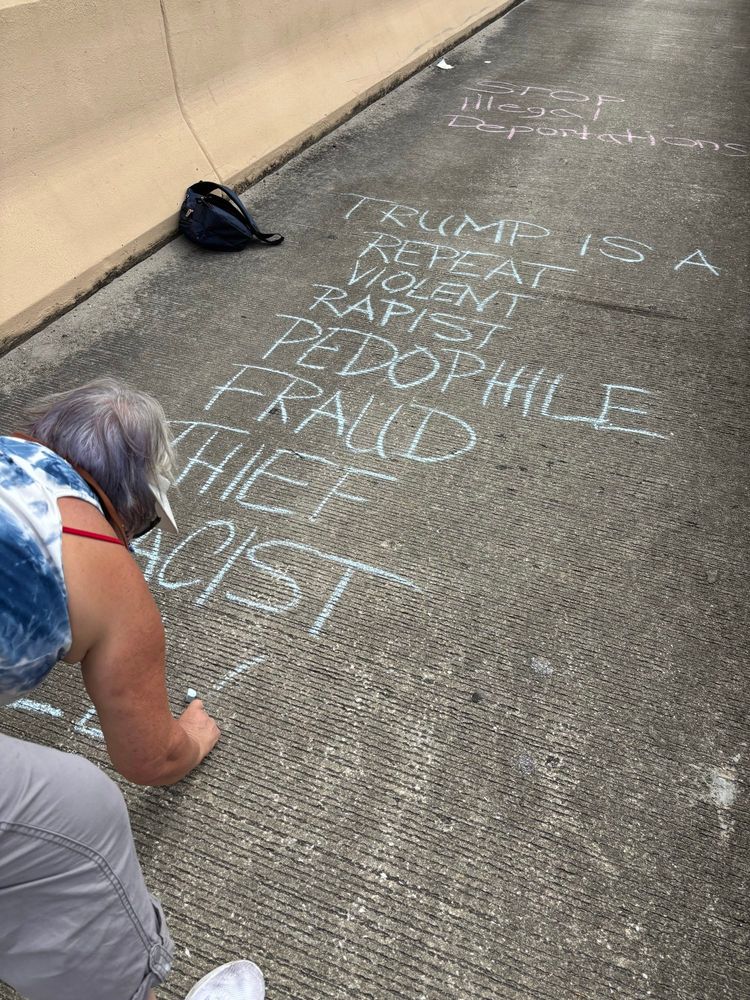 STOP
illegal
Deportations
TRUMP IS A
REPEAT
VIOLENT
RAPIST
PEDOPHILE
FRAUD
THIEF
ACIST